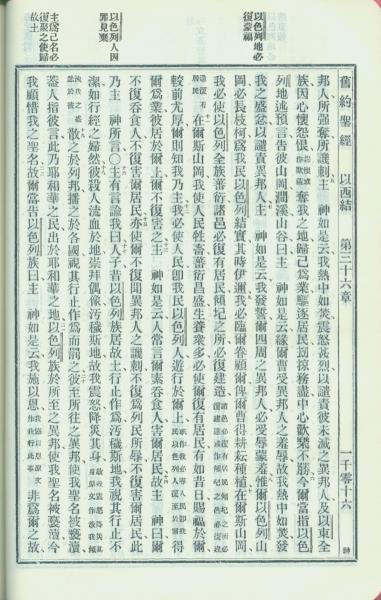 以色列地必
復蒙福
以色列人因
罪見棄
主爲己名必
復聚之使歸
故土
舊約聖經 以西結 第三十六章 一千零十六
邦人所强奪所譏刺主 神如是云我熱中如焚震怒甚烈以譴責彼未滅之異邦人及以東全
族因心懷怨恨奪我之地歸己爲業驅逐居民刦掠務盡中心歡樂不勝今爾當指以色
列地述預言告彼山岡澗溪山谷曰主 神如是云緣爾曹受異邦人之羞辱故我熱中如焚發
我之盛忿以譴責異邦人主 神如是云我發誓爾四周之異邦人必受辱蒙羞惟爾以色列山
岡必長枝柯爲我民以色列結實其時伊邇我必臨爾眷顧爾俾爾曹得耕耘種植在爾斯山岡
我必使以色列全族蕃衍諸邑必復有居民傾圮之所必復建造
在爾斯山岡我使人民牲畜蕃衍昌盛生養衆多必使爾復有居民有如昔日賜福於爾
較前尤厚爾則知我乃主我必使人民卽我民以色列人遊行於爾上 得
爾爲業彼居於爾上爾不復害之主 神如是云人常言爾素吞食人害爾居民故主 神曰爾
不復吞食人不復害爾居民亦使爾不復聞異邦人之譏刺不復爲列民所辱不復害爾居民此
乃主 神所言〇主有言諭我曰人子昔以色列族居故土行止作爲污穢斯地我視其行止不
潔如行經之婦然彼殺人流血於地崇拜偶像污穢斯地故我震怒降災其身
散之於列邦播之於各國視其行止作爲而罰之彼至所往之異邦使我聖名被褻瀆
蓋人指彼曰此乃耶和華之民出於耶和華之地以色列族於所至之異邦使我聖名被褻瀆今
我顧惜我之聖名故爾當告以色列族曰主 神如是云我施以恩 非爲爾之故